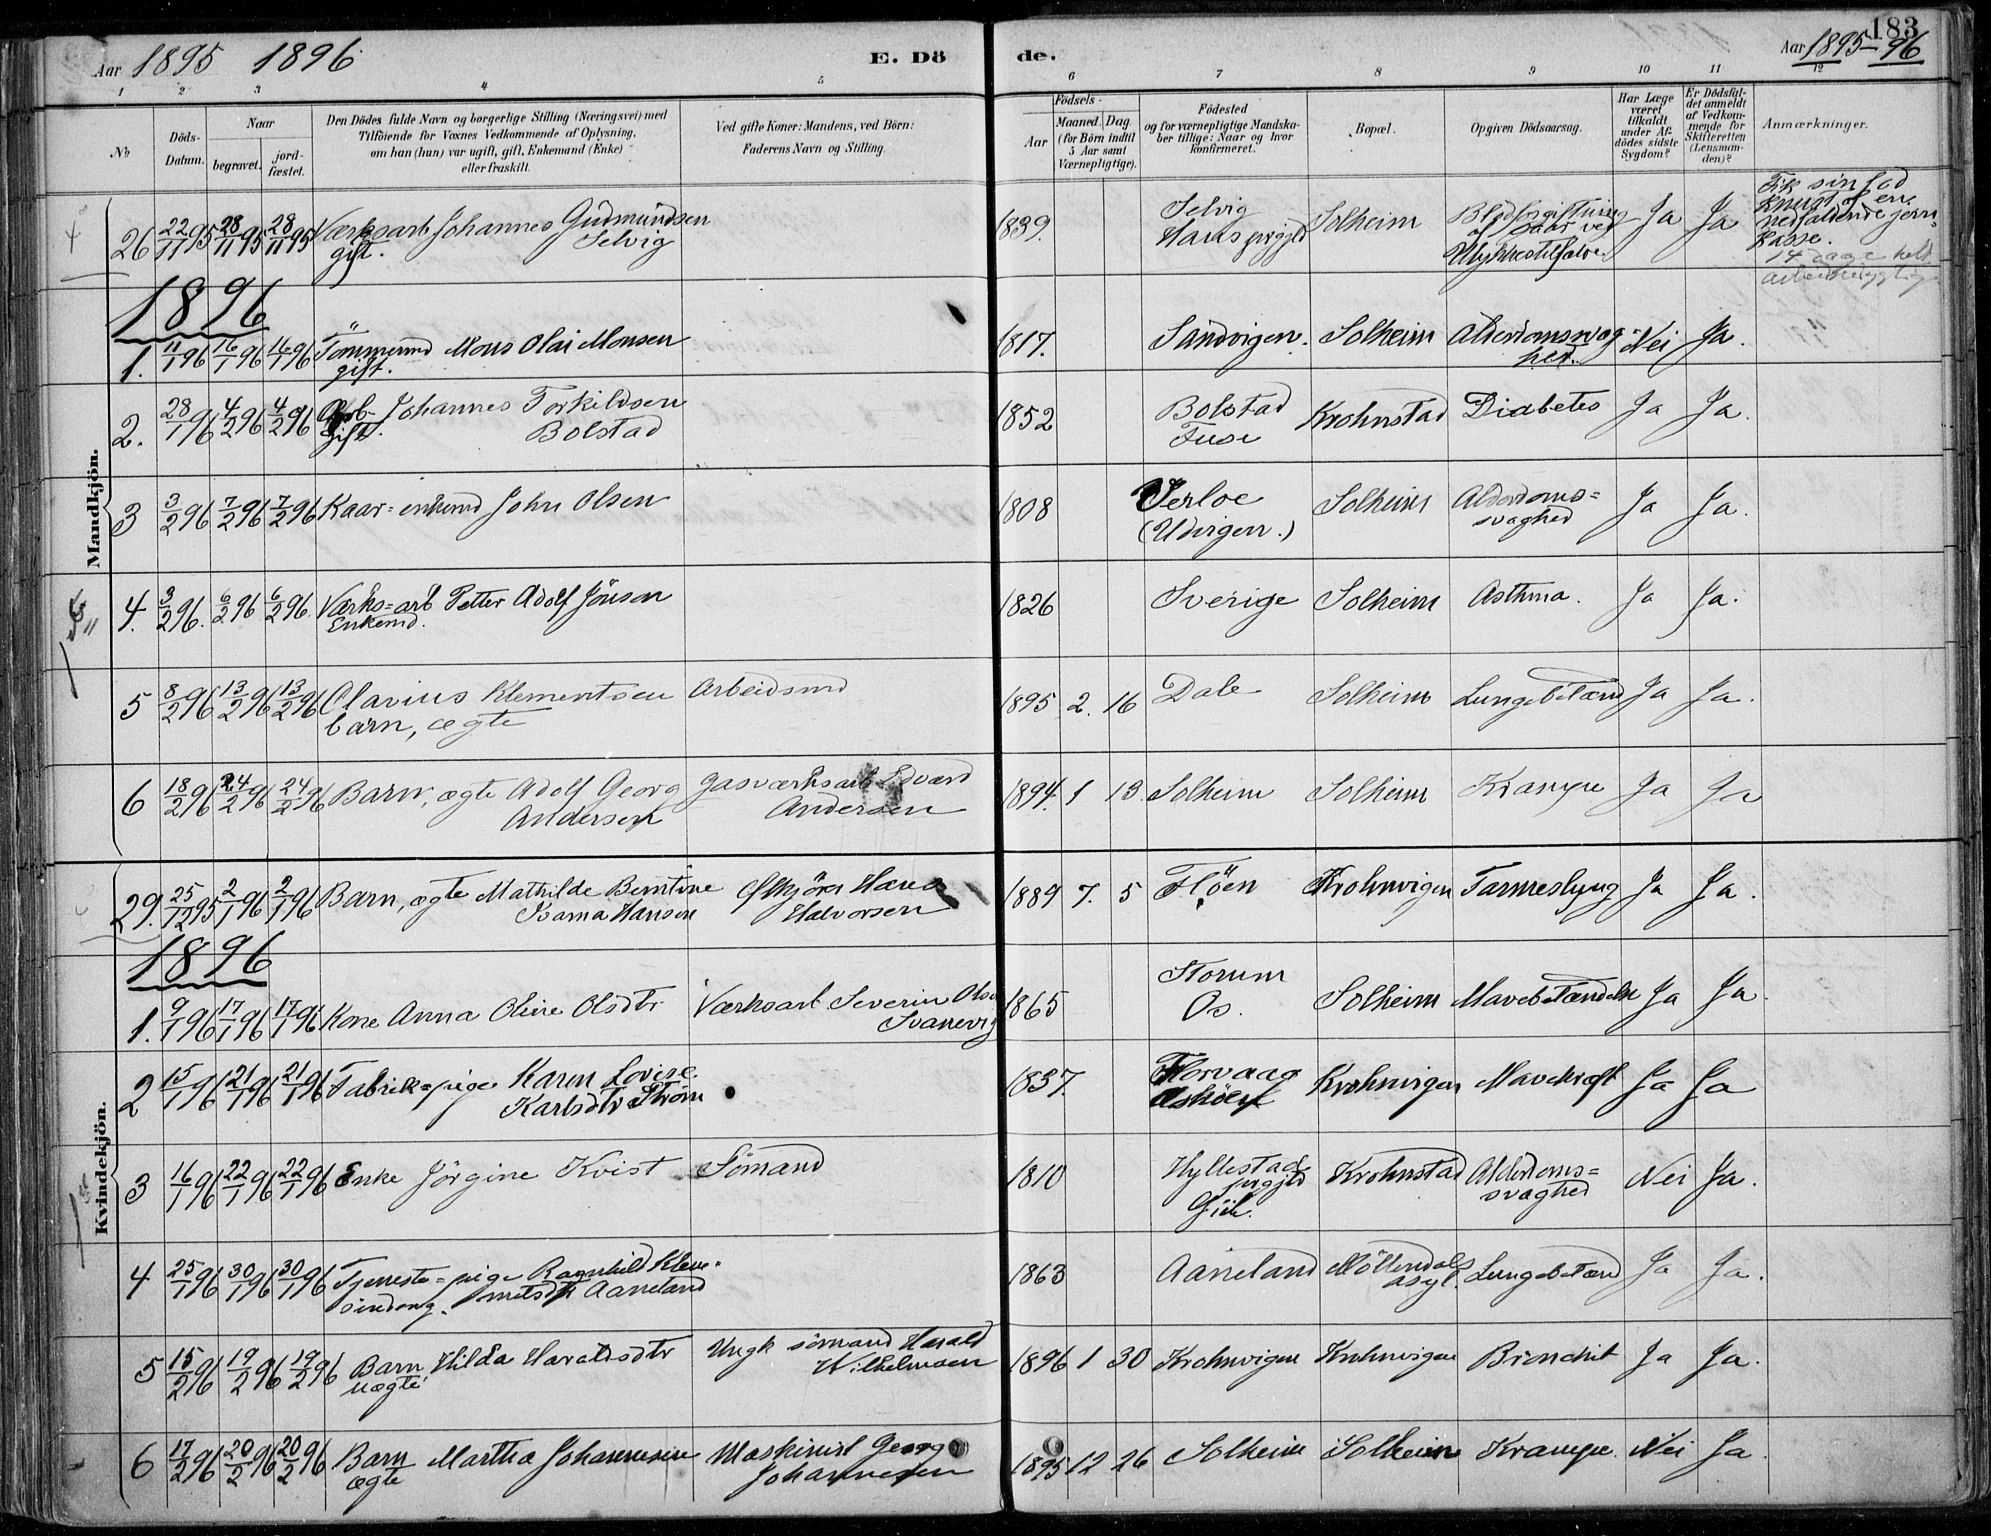 183
Aar 1895 1896 E. Dö de. Aar 1895-96
1 2 3 4 5 6 7 8 9 10 11 12
№
Döds-Datum.
Naar
begravet.
jord-fæstet.
Den Dödes fulde Navn og borgerlige Stilling (Næringsvei) med
Tilföiende for Voxnes Vedkommende af Oplysning,
om han (hun) var ugift, gift, Enkemand (Enke)
eller fraskilt.
Ved gifte Koner: Mandens, ved Börn:
Faderens Navn og Stilling.
Födsels-
Aar Maaned. Dag.
(for Börn indtil
5 Aar samt
Værnepligtige).
Födested
og for værnepligtige Mandska-
ber tillige: Naar og hvor
konfirmeret.
Bopæl.
Opgiven Dödsaarsag.
Har Læge
været
tilkaldt
under Af-
dödes sidste
Sygdom?
Er Dödsfal-
det anmeldt
af Vedkom-
mende for
Skifteretten
(Lensman-
den)?
Anmærkninger.
Mandkjön.
26 22/11 95 28/11 95 28/11 95 Værksarb Johannes Gudmundsen 1839. Selvig Solheim Blodforgiftning Ja Ja Fik sin fod
gift. Selvig Haus prgjld af saar ved knust af en
Ulykkestilfælde nedfaldende jern-
kasse.
14 dage
1896
1. 11/1 96 16/1 96 16/1 96 Tömmermd Mons Olai Monsen 1817. Sandvigen. Solheim Alderdomssvag- Nei Ja.
gift. hed.
2. 28/1 96 4/2 96 4/2 96 Arb- Johannes Torkildsen 1852 Bolstad Krohnstad Diabetes Ja Ja.
gift. Bolstad Fuse
3 3/2 96 7/2 96 7/2 96 Kaar- enkemd John Olsen 1808 Solheim Alderdoms= Ja Ja.
svaghed
4. 3/2 96. 6/2 96 6/2 96. Værks=arb Petter Adolf Jönson 1826 Sverige Solheim Asthma. Ja Ja.
Enkemd.
5 8/2 96 13/2 96 13/2 96 Olavius Klementsen Arbeidsmd 1895 2. 16 Dale Solheim Lungebetænd Ja Ja.
barn, ægte
6 18/2 96 24/2 96 24/2 96 Barn, ægte Adolf Georg Gasværksarb Edvard 1894. 1 13. Solheim Solheim Krampe Ja Ja
Andersen Andersen
Kvindekjön.
29. 25/12 95 2/1 96 2/1 96 Barn, ægte Mathilde Berntine Hans 1889 7. 5 Flöen Krohnvigen Ja Ja.
Hansen Halvorsen
1896
1. 9/1 96 17/1 96 17/1 96 Kone Anna Oline Olsdtr Værksarb Severin Olsen 1865 Storum Solheim Mavebetændelse Ja Ja.
Svanevig Os.
2 15/1 96 21/1 96 21/1 96 Fabrik=pige Karen Lovise 1837. Krohnvigen Mavekræft Ja Ja
Karlsdtr Ström Asköen
3 16/1 96 22/1 96 22/1 96 Enke Jörgine Kvist Sömand 1810 Hyllestad Krohnstad Alderdoms= Nei Ja.
prgjld svaghed
4 25/1 96 30/1 96 30/1 96 Tjeneste=pige Ragnhild Klem- 1863 Aaneland Möllendals Lungebetænd Ja Ja.
sindssyg. metsdtr Aaneland asyl.
5 15/2 96 19/2 96 19/2 96 Barn Hilda Haraldsdtr Ungk sömand Harald 1896 1 30 Krohnvigen Krohnvigen Bronchit Ja Ja.
uægte Wilhelmsen
6 17/2 96 20/2 96 20/2 96 Barn Martha Johannesen Maskinist Georg 1895 12 26 Solheim Solheim Krampe. Nei Ja.
ægte Johannesen